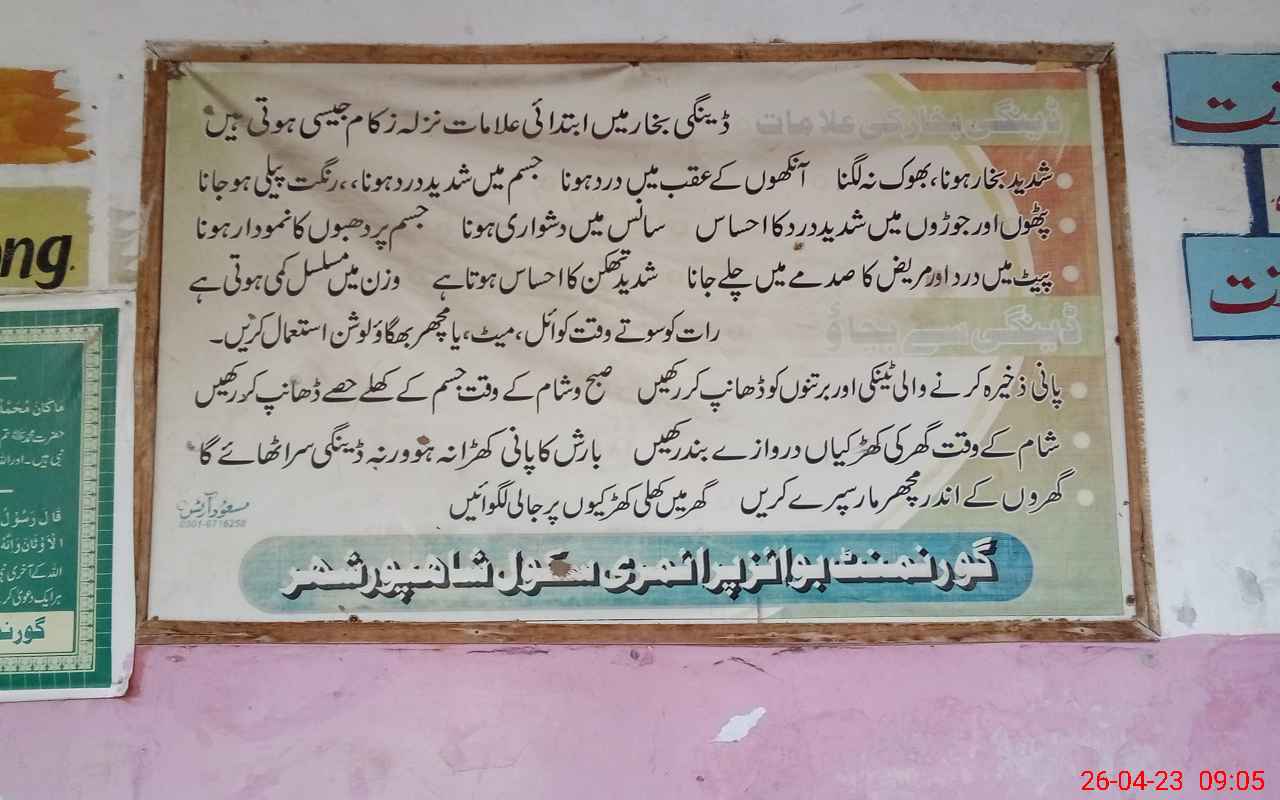 ڈینگی بخار کی علامات ڈینگی بخار میں ابتدائی علامات نزلہ زکام جیسی ہوتی ہیں
شدید بخار ہونا، بھوک نہ لگنا آنکھوں کے عقب میں درد ہونا جسم میں شدید درد ہونا،، رنگت پیلی ہو جانا
پٹھوں اور جوڑوں میں شدید درد کا احساس سانس میں دشواری ہونا جسم پر دھبوں کا نمودار ہونا
پیٹ میں درد اور مریض کا صدمے میں چلے جانا شدید تھکن کا احساس ہوتا ہے وزن میں مسلسل کمی ہوتی ہے
ڈینگی سے بچاؤ رات کو سوتے وقت کوائل، میٹ، یا مچھر بھگاؤ لوشن استعمال کریں۔
پانی ذخیرہ کرنے والی ٹینکی اور برتنوں کو ڈھانپ کر رکھیں صبح و شام کے وقت جسم کے کھلے حصے ڈھانپ کر رکھیں
شام کے وقت گھر کی کھڑکیاں دروازے بند رکھیں بارش کا پانی کھڑا نہ ہو ورنہ ڈینگی سر اٹھائے گا
گھروں کے اندر مچھر مار سپرے کریں گھر میں کھلی کھڑکیوں پر جالی لگوائیں
مسعود آرٹس
0301-6716258
گورنمنٹ بوائز پرائمری سکول شاہپور شہر
ong.
ماکان محمد
قال رسول
اللہ کے آخری نبی
26-04-23 09:05